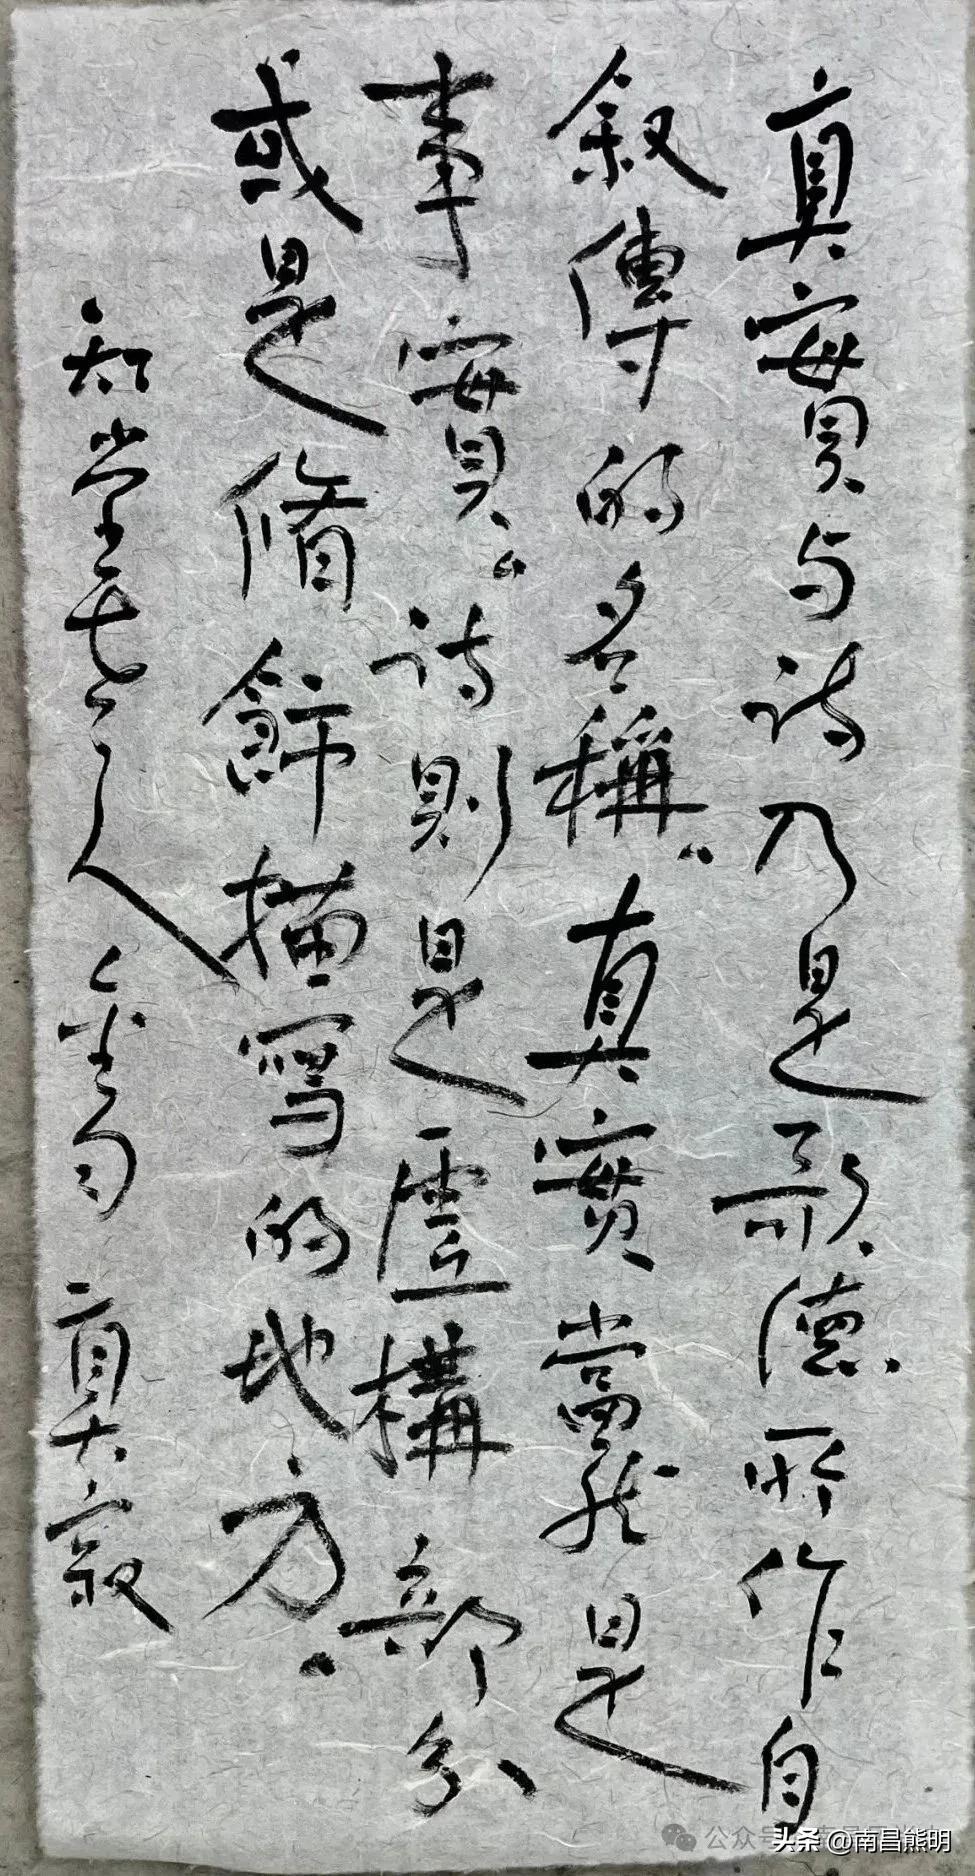 真實与詩乃是歌德所作自
叙傳的名稱。真實當然是
事實。詩則是虛構部分
或是脩飾描寫的地方。
知堂老人金句 盲大寂
公众号·南昌熊明
头条 @南昌熊明